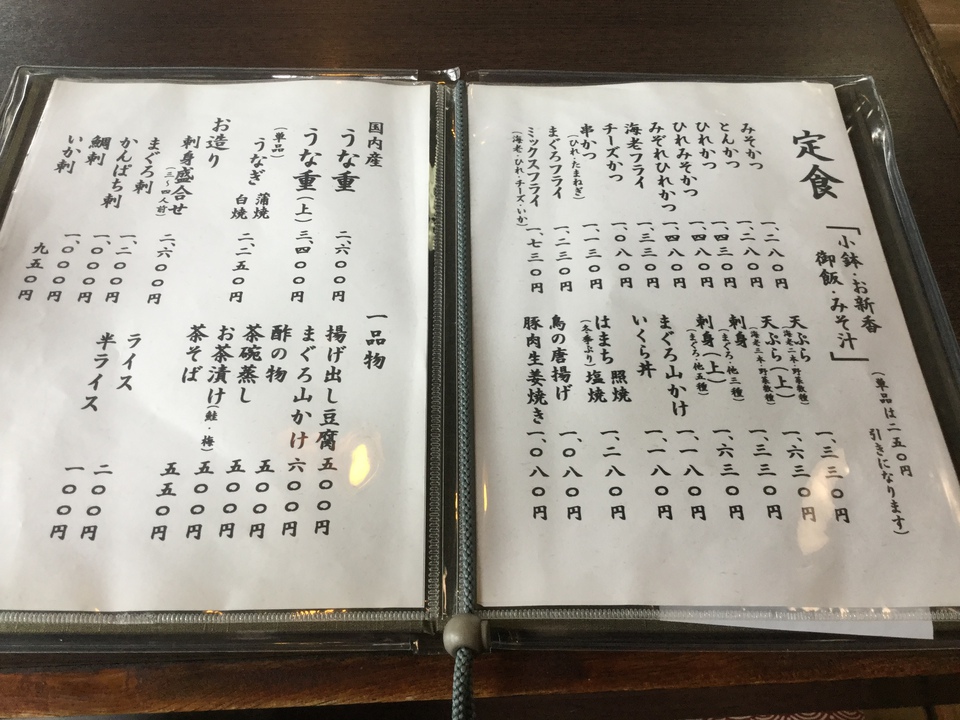 定食
「小鉢・お新香
御飯・みそ汁」
(単品は二五〇円
引きになります)
みそかつ 一、二八〇円
とんかつ 一、二八〇円
ひれかつ 一、四三〇円
ひれみそかつ 一、四八〇円
みぞれひれかつ 一、四八〇円
海老フライ 一、三三〇円
チーズかつ 一、〇八〇円
串かつ 一、一三〇円
(ひれ・たまねぎ)
まぐろフライ 一、二三〇円
ミックスフライ 一、七三〇円
(海老・ひれ・チーズ・いか)
天ぷら 一、三三〇円
(海老二本・野菜数種)
天ぷら(上) 一、六三〇円
(海老三本・野菜数種)
刺身 一、三三〇円
(まぐろ・他三種)
刺身(上) 一、六三〇円
(まぐろ・他五種)
まぐろ山かけ 一、一八〇円
いくら丼 一、一八〇円
はまち 照焼 塩焼 一、二八〇円
(冬季ぶり)
鳥の唐揚げ 一、〇八〇円
豚肉生姜焼き 一、〇八〇円
国内産
うな重 二、六〇〇円
うな重(上) 三、四〇〇円
(単品)
うなぎ 蒲焼 白焼 二、二五〇円
お造り
刺身盛合せ(三〜四人前) 二、六〇〇円
まぐろ刺 一、二〇〇円
かんぱち刺 一、〇〇〇円
鯛刺 一、〇〇〇円
いか刺 九五〇円
一品物
揚げ出し豆腐 五〇〇円
まぐろ山かけ 六〇〇円
酢の物 五〇〇円
茶碗蒸し 五〇〇円
お茶漬け(鮭・梅) 五〇〇円
茶そば 五五〇円
ライス 二〇〇円
半ライス 一〇〇円